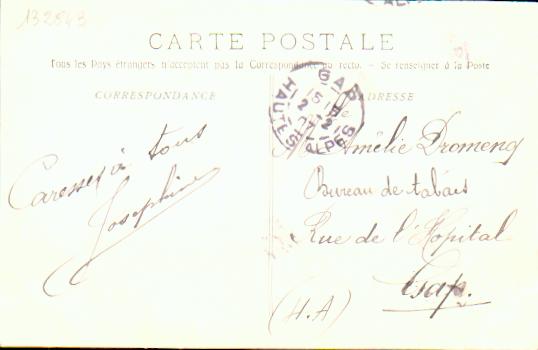 132543
CARTE POSTALE
Tous les Pays étrangers n'acceptent pas la Correspondance au recto. - Se renseigner à la Poste
CORRESPONDANCE
ADRESSE
GAP
HAUTES ALPES
Caresses à tous
Josephine
Mlle Amélie Dromenq
Bureau de tabacs
Rue de l'Hopital
Gap.
(H.A)